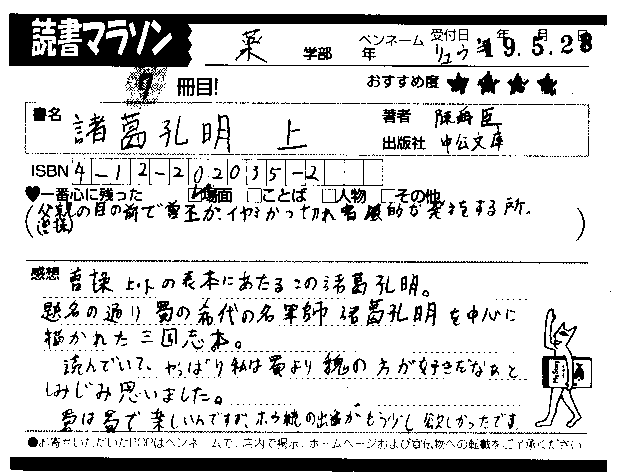 読書マラソン
薬 学部 年 ペンネーム リュウ 受付日 年 月 日 19.5.28
9 冊目! おすすめ度 ★★★★
書名 諸葛孔明 上 著者 陳舜臣
出版社 中公文庫
ISBN 4-12-202035-2
♥一番心に残った 場面 □ことば □人物 □その他
(父親の目の前で曹丕が、イヤミかつ切れ者的な発言をする所。
(曹操) )
感想 曹操 上・下の表本にあたるこの諸葛孔明。
題名の通り蜀の希代の名軍師 諸葛孔明を中心に
描かれた三国志本。
読んでいて、やっぱり私は蜀より魏の方が好きだなぁと
しみじみ思いました。
蜀は蜀で楽しいんですが、ホウ統の出番がもう少し欲しかったです
●お寄せいただいたPOPはペンネームで、店内で掲示、ホームページおよび宣伝物への転載をご了承ください